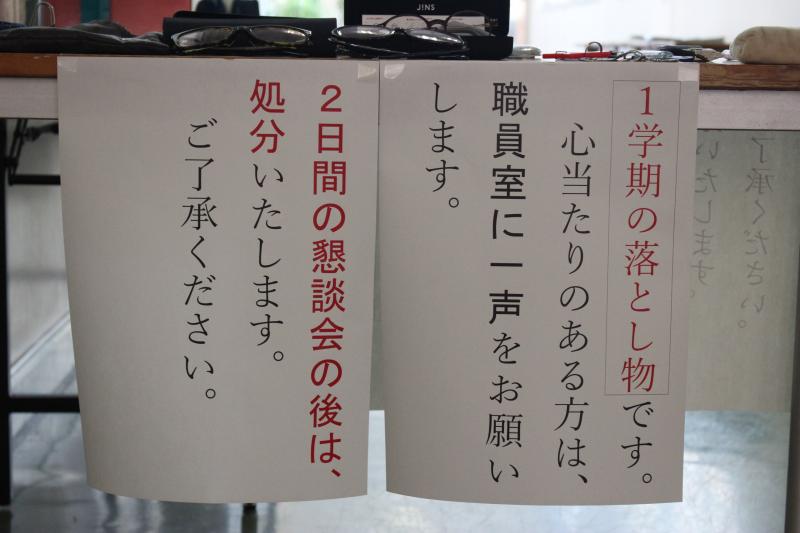 J!NS
1学期の落とし物です。
心当たりのある方は、
職員室に一声をお願い
します。
2日間の懇談会の後は、
処分いたします。
ご了承ください。
了承ください。
いたします。